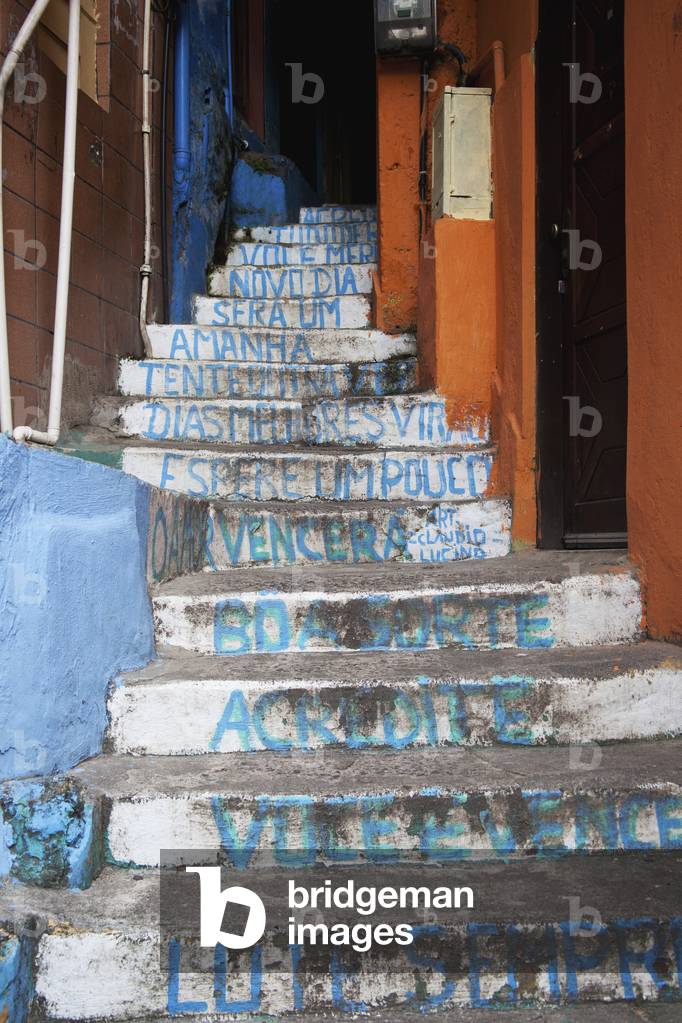 VOCE MER
NOVO DIA
SERA UM
AMANHA
TENTE
DIAS MELHORES VIRAO
ESPERE UM POUCO
VENCERÁ
ART
CLAUDIO
LUCINE
BÔA SORTE
ACREDITE
VOCE É VENCE
LUTE SEMPRE
b bridgeman
images